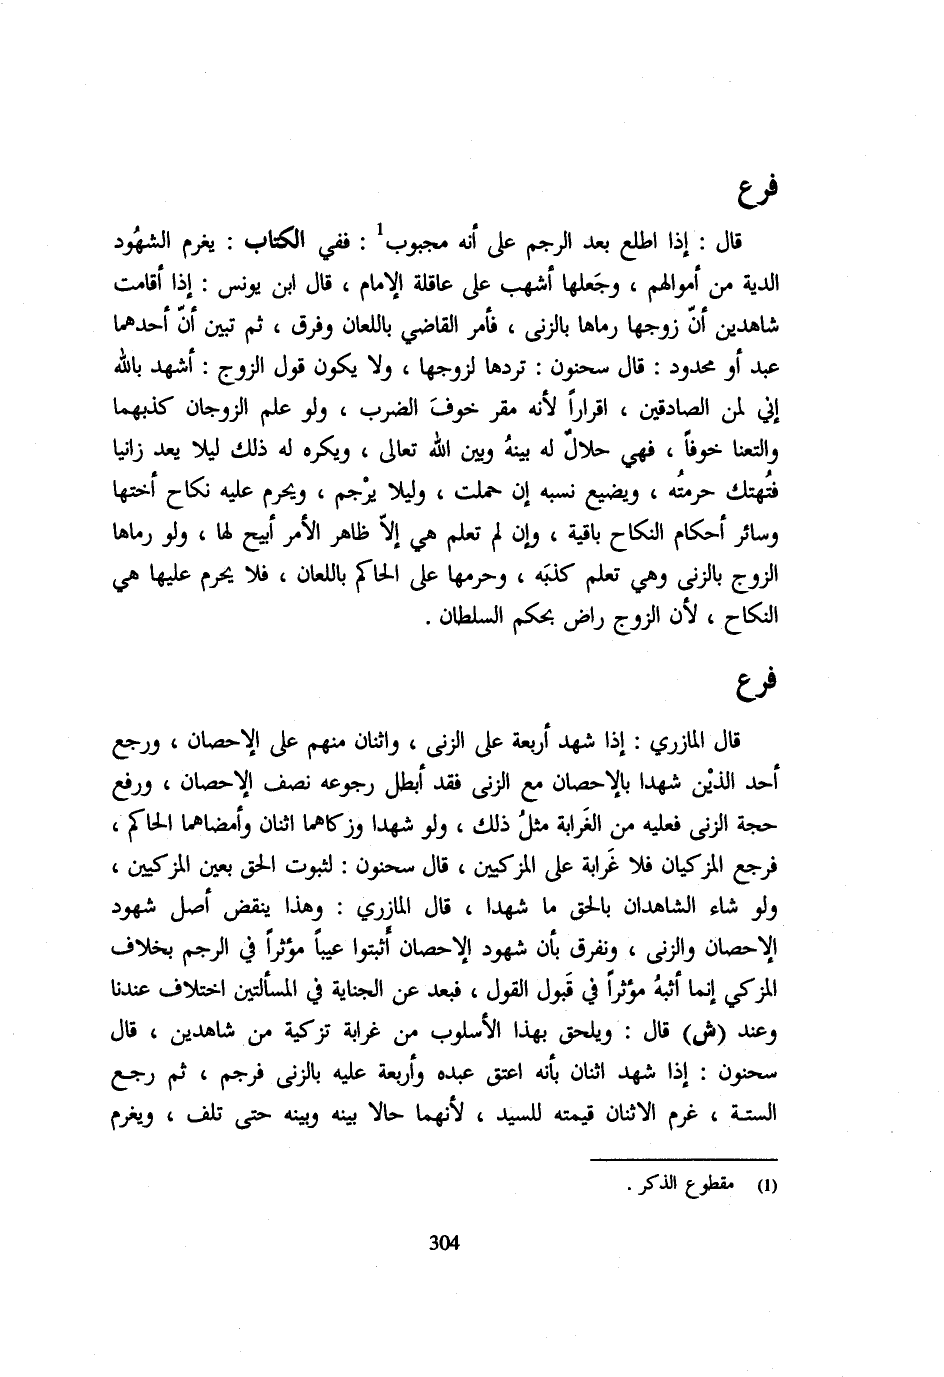 فرع
قال : إذا اطلع بعد الرجم على أنه مجبوب1 : ففي الكتاب : يغرم الشهُود
الدية من أموالهم ، وجَعلها أشهب على عاقلة الإمام ، قال ابن يونس : إذا أقامت
شاهدين أنّ زوجها رماها بالزنى ، فأمر القاضي باللعان وفرق ، ثم تبين أنّ أحدهما
عبد أو محدود : قال سحنون : تردها لزوجها ، ولا يكون قول الزوج : أشهد بالله
إني لمن الصادقين ، اقراراً لأنه مقر خوفَ الضرب ، ولو علم الزوجان كذبهما
والتعنا خوفاً ، فهي حلالٌ له بينهُ وبين الله تعالى ، ويكره له ذلك ليلا يعد زانيا
فتُهتك حرمتُه ، ويضيع نسبه إن حملت ، وليلا يرْجم ، ويحرم عليه نكاح أختها
وسائر أحكام النكاح باقية ، وإن لم تعلم هي إلاّ ظاهر الأمر أبيح لها ، ولو رماها
الزوج بالزنى وهي تعلم كذبَه ، وحرمها على الحاكم باللعان ، فلا يحرم عليها هي
النكاح ، لأن الزوج راض بحكم السلطان .
فرع
قال المازري : إذا شهد أربعة على الزنى ، واثنان منهم على الإحصان ، ورجع
أحد الذيْن شهدا بالإحصان مع الزنى فقد أبطل رجوعه نصف الإحصان ، ورفع
حجة الزنى فعليه من الغَرابة مثلُ ذلك ، ولو شهدا وزكاهما اثنان وأمضاهما الحاكم ،
فرجع المزكيان فلا غَرابة على المزكيين ، قال سحنون : لثبوت الحق بعين المزكيين ،
ولو شاء الشاهدان بالحق ما شهدا ، قال المازري : وهذا ينقض أصل شهود
الإحصان والزنى ، ونفرق بأن شهود الإحصان أَثبتوا عيباً مؤثراً في الرجم بخلاف
المزكي إنما أثبهُ مؤثراً في قَبول القول ، فبعد عن الجناية في المسألتين اختلاف عندنا
وعند (ش) قال : ويلحق بهذا الأسلوب من غرابة تزكية من شاهدين ، قال
سحنون : إذا شهد اثنان بأنه اعتق عبده وأربعة عليه بالزنى فرجم ، ثم رجع
الستة ، غرم الاثنان قيمته للسيد ، لأنهما حالا بينه وبينه حتى تلف ، ويغرم
(1) مقطوع الذكر .
304